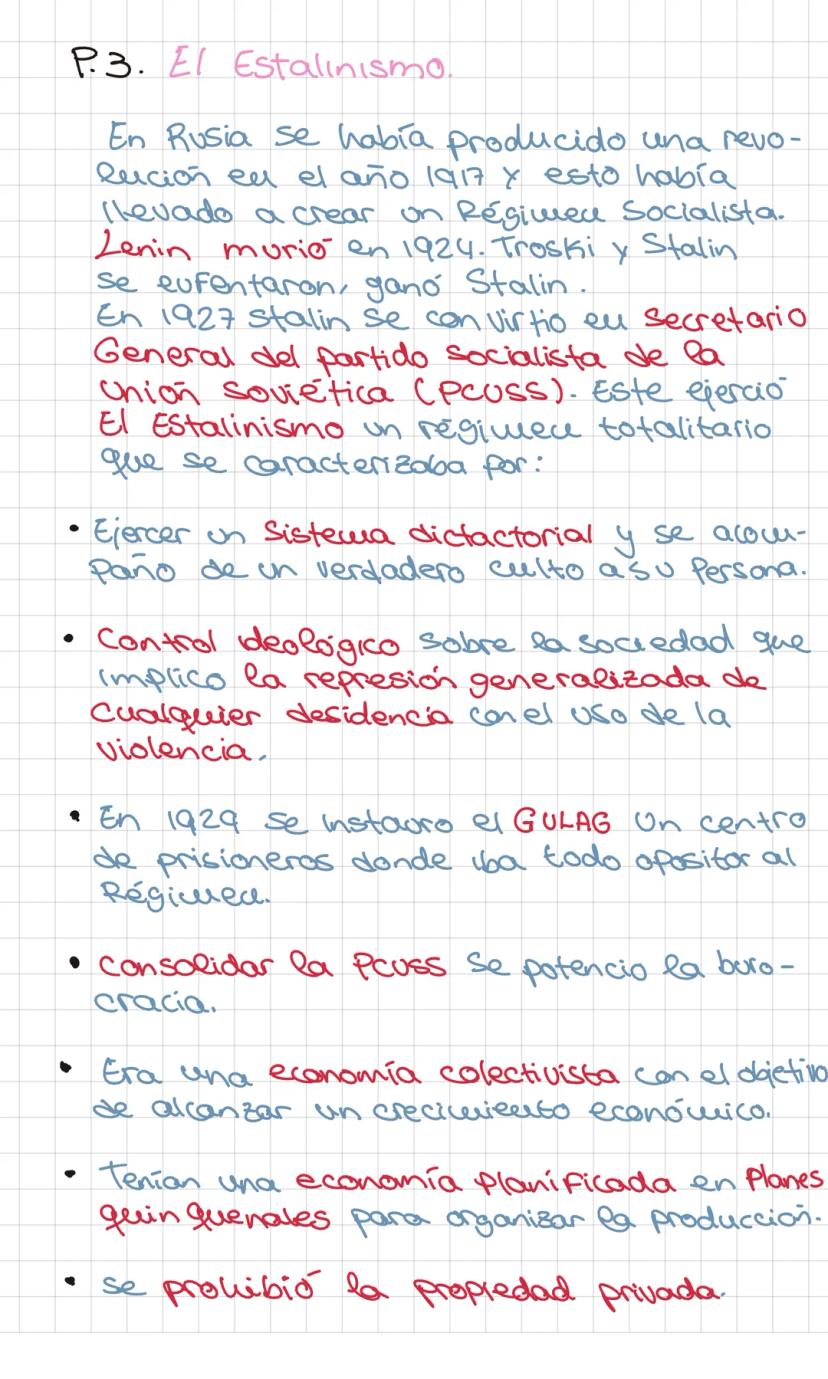 P.3. El Estalinismo.
En Rusia se había producido una revo-
lución en el año 1917 y esto había
llevado a crear un Régimen Socialista.
Lenin murió en 1924. Troski y Stalin
se enfentaron, ganó Stalin.
En 1927 Stalin se convirtio en Secretario
General del partido socialista de la
Unión Soviética (PCUSS). Este ejerció
El Estalinismo un régimen totalitario
que se caracterizaba por:
• Ejercer un Sistema dictactorial y se acom-
paño de un verdadero culto a su Persona.
• Control ideológico sobre la sociedad que
implico la represión generalizada de
Cualquier desidencia con el uso de la
violencia.
• En 1929 se instauro el GULAG Un centro
de prisioneros donde iba todo opositor al
Régimen.
• Consolidar la PCUSS Se potencio la buro-
cracia.
• Era una economía colectivista con el objetivo
de alcanzar un crecimiento económico.
• Tenían una economía planificada en Planes
quinquenales para organizar la producción.
• Se prohibió la propiedad privada.